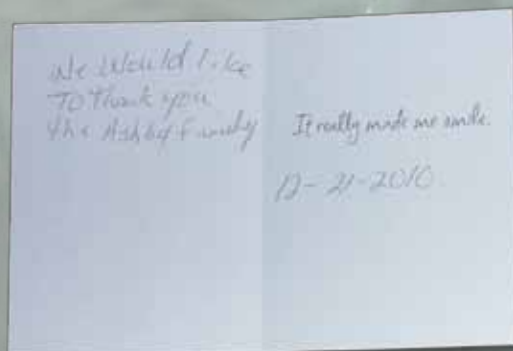 We Would Like
To Thank you
The Ashby Family
It really made me smile.
12-21-2010